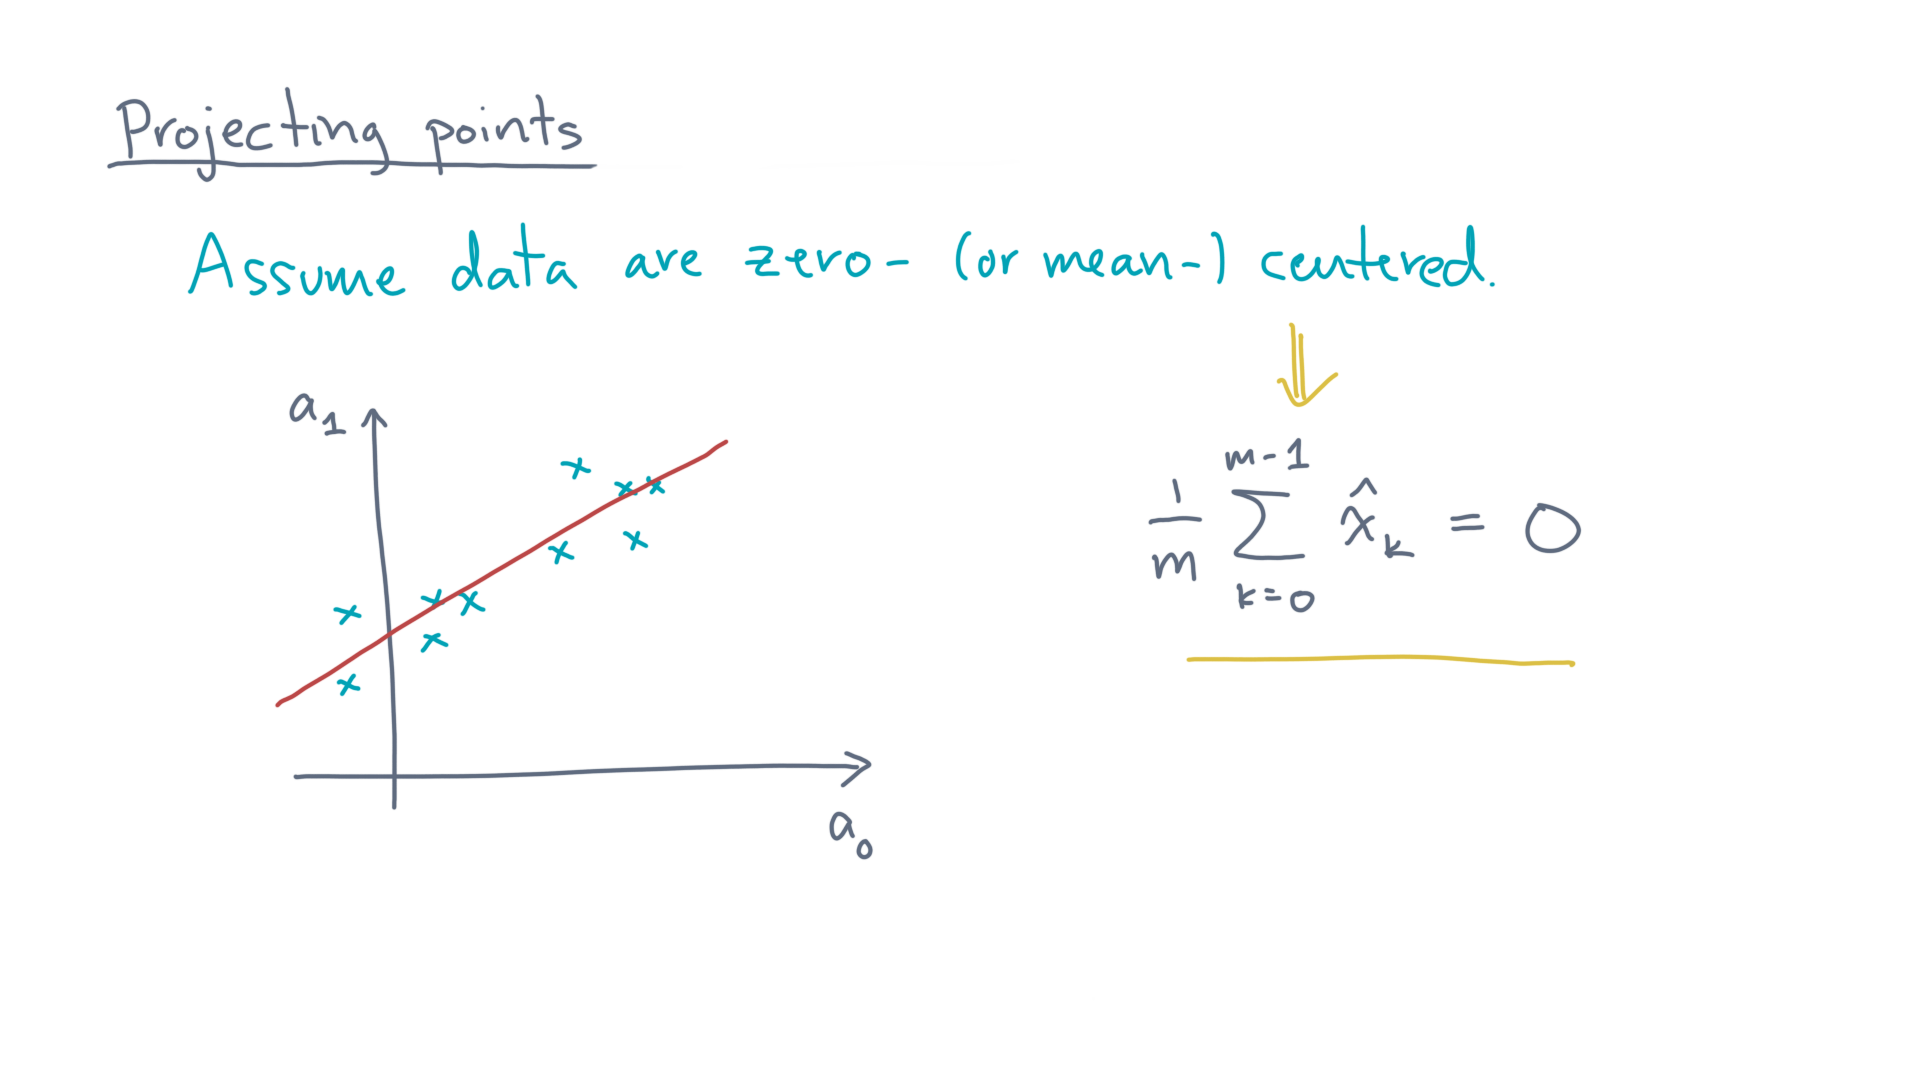 Projecting points
Assume data are zero- (or mean-) centered.
a₁
a₀
m-1
1/m ∑ x̂ₖ = 0
k=0